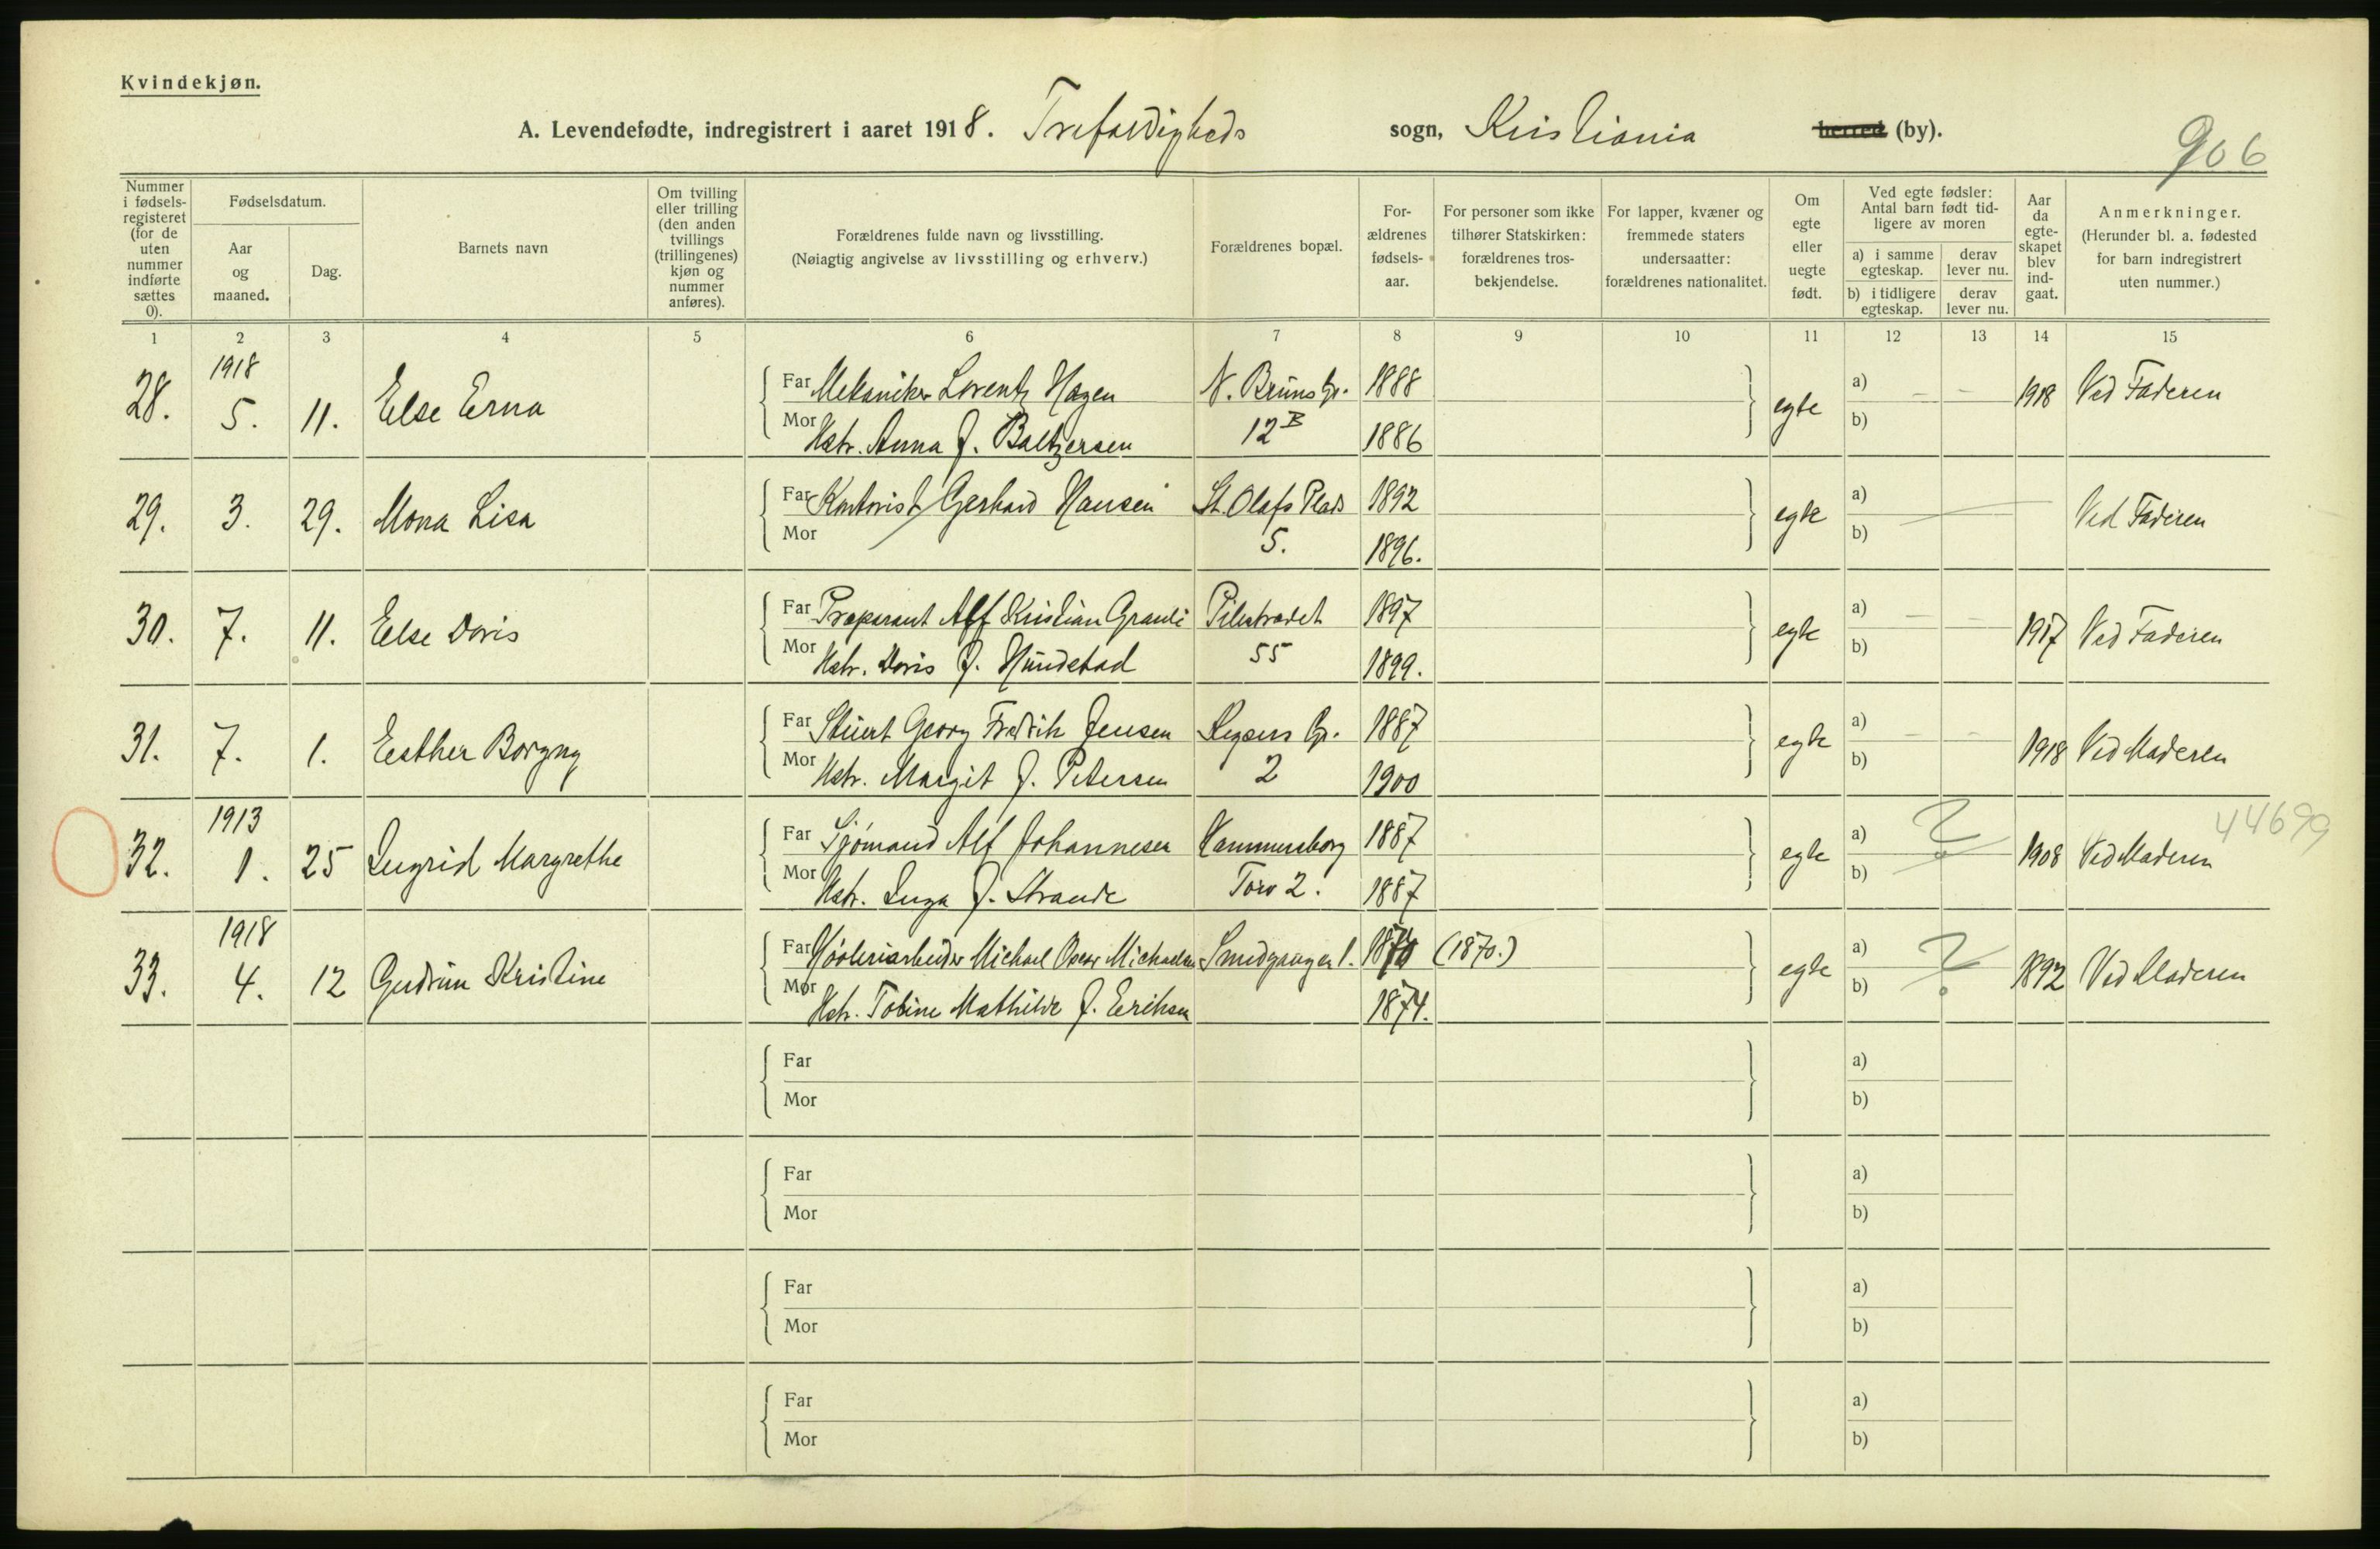 Kvindekjøn.
A. Levendefødte, indregistrert i aaret 1918. Trefoldigheds sogn, Kristiania herred (by).
906
Nummer i fødselsregisteret (for de uten nummer indførte sættes 0).
Fødselsdatum.
Aar og maaned.
Dag.
Barnets navn
Om tvilling eller trilling (den anden tvillings (trillingenes) kjøn og nummer anføres).
Forældrenes fulde navn og livsstilling.
(Nøiagtig angivelse av livsstilling og erhverv.)
Forældrenes bopæl.
Forældrenes fødselsaar.
For personer som ikke tilhører Statskirken: forældrenes trosbekjendelse.
For lapper, kvæner og fremmede staters undersaatter: forældrenes nationalitet.
Om egte eller uegte født.
Ved egte fødsler: Antal barn født tidligere av moren
a) i samme egteskap.
derav lever nu.
b) i tidligere egteskap.
derav lever nu.
Aar da egteskapet blev indgaat.
Anmerkninger.
(Herunder bl. a. fødested for barn indregistrert uten nummer.)
1 2 3 4 5 6 7 8 9 10 11 12 13 14 15
1918
28. 5. 11. Else Erna Far Mekaniker Lorentz Hagen N. Bruns Gr. 1888 egte a) – – 1918 Ved Faderen
Mor Hstr. Anna f. Baltzersen 12B 1886 b)
29. 3. 29. Mona Lisa Far Kontorist Gerhard Hansen St. Olafs Plads 1892 egte a) Ved Faderen
Mor 5. 1896. b)
30. 7. 11. Else Doris Far Præparant Alf Kristian Granli Pilestrædet 1897 egte a) – – 1917 Ved Faderen
Mor Hstr. Doris f. Hundstad 55 1899. b)
31. 7. 1. Esther Borgny Far Stuert Georg Fredrik Jensen Keysers Gr. 1887 egte a) – – 1918 Ved Moderen
Mor Hstr. Margit f. Petersen 2 1900 b)
1913
44699
32. 1. 25 Ingrid Margrethe Far Sjømand Alf Johannesen Hammersborg 1887 egte a) ? 1908 Ved Moderen
Mor Hstr. Inga f. Strande Torv 2. 1887 b)
1918
33. 4. 12 Gudrun Kristine Far Høvleriarbeider Michael Oscar Michaelsen Smedgangen 1. 1870 (1870.) egte a) ? 1892 Ved Moderen
Mor Hstr. Tobine Mathilde f. Eriksen 1874. b)
Far a)
Mor b)
Far a)
Mor b)
Far a)
Mor b)
Far a)
Mor b)